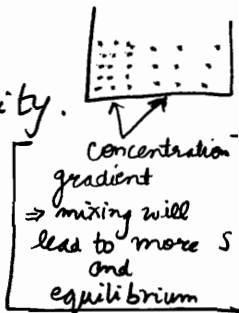 ity.
concentration
gradient
⇒ mixing will
lead to more S
and
equilibrium